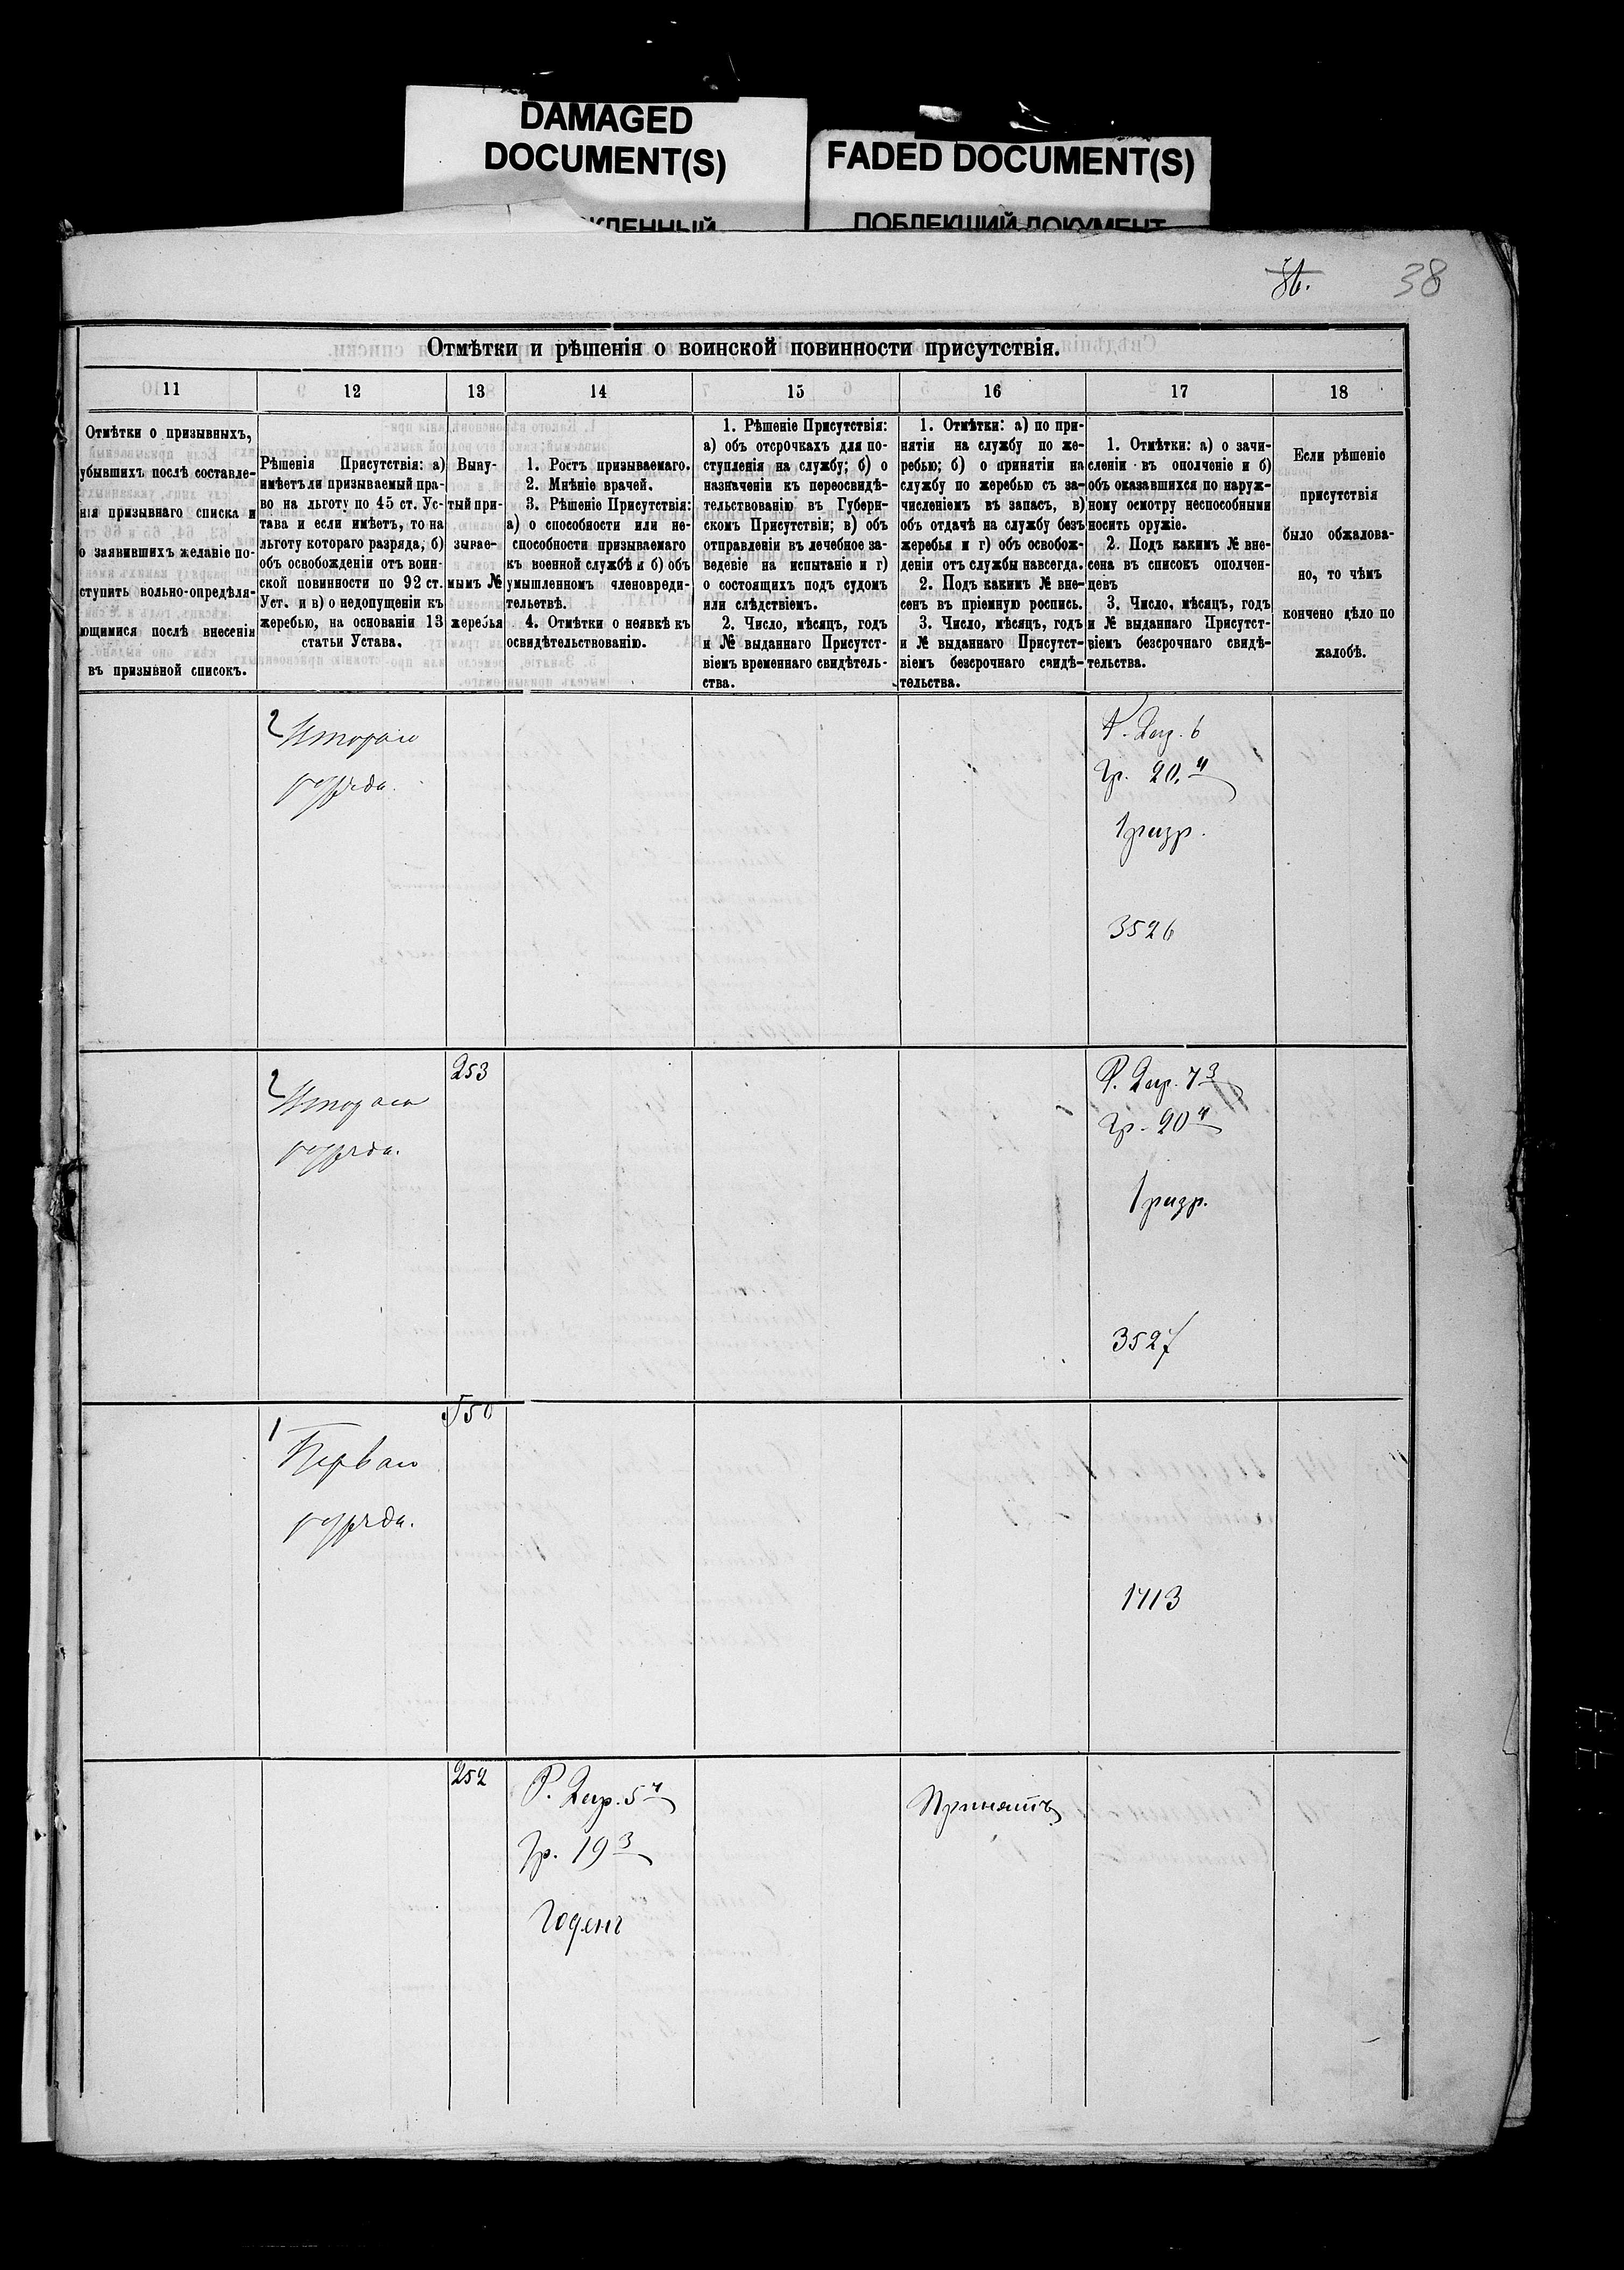 DAMAGED
DOCUMENT(S)
FADED DOCUMENT(S)
ПОБЛЕКШИЙ ДОКУМЕНТ
38
Отмѣтки и рѣшенія о воинской повинности присутствія.
11
12
13
14
15
16
17
18
Отмѣтки о призывныхъ,
убывшихъ послѣ составле-
нія призывнаго списка и
о заявившихъ желаніе по-
ступить вольно-опредѣля-
ющимися послѣ внесенія
въ призывной списокъ.
Рѣшенія Присутствія: а)
имѣетъ ли призываемый пра-
во на льготу по 45 ст. Ус-
тава и если имѣетъ, то на
льготу котораго разряда, б)
объ освобожденіи отъ воин-
ской повинности по 92 ст.
Уст. и в) о недопущеніи къ
жеребью, на основаніи 13
статьи Устава.
Выну-
тый при-
зывае-
мымъ №
жеребья
1. Ростъ призываемаго.
2. Мнѣніе врачей.
3. Рѣшеніе Присутствія:
а) о способности или не-
способности призываемаго
къ военной службѣ и б) объ
умышленномъ членовреди-
тельствѣ.
4. Отмѣтки о неявкѣ къ
освидѣтельствованію.
1. Рѣшеніе Присутствія:
а) объ отсрочкахъ для по-
ступленія на службу; б) о
назначеніи къ переосвидѣ-
тельствованію въ Губерн-
скомъ Присутствіи; в) объ
отправленіи въ лечебное за-
веденіе на испытаніе и г)
о состоящихъ подъ судомъ
или слѣдствіемъ.
2. Число, мѣсяцъ, годъ
и № выданнаго Присутст-
віемъ временнаго свидѣтель-
ства.
1. Отмѣтки: а) по при-
нятіи на службу по же-
ребью; б) о принятіи на
службу по жеребью съ за-
численіемъ въ запасъ, в)
объ отдачѣ на службу безъ
жеребья и г) объ освобож-
деніи отъ службы навсегда.
2. Подъ какимъ № вне-
сенъ въ пріемную роспись.
3. Число, мѣсяцъ, годъ
и № выданнаго Присутст-
віемъ безсрочнаго свидѣ-
тельства.
1. Отмѣтки: а) о зачи-
сленіи въ ополченіе и б)
объ оказавшихся по наруж-
ному осмотру неспособными
носить оружіе.
2. Подъ какимъ № вне-
сена въ списокъ ополчен-
цевъ
3. Число, мѣсяцъ, годъ
и № выданнаго Присутст-
віемъ безсрочнаго свидѣ-
тельства.
Если рѣшеніе
присутствія
было обжалова-
но, то чѣмъ
кончено дѣло по
жалобѣ.
2
Втораго
разряда.
Р. 2 ар. 6
Гр. 20, 4
1 разр.
3526
2
Втораго
разряда.
253
Р. 2 ар. 7 3
Гр. 20 4
1 разр.
3527
1
Перваго
разряда.
550
1713
252
Р. 2 ар. 5 4
Гр. 19 3
Годенъ
Принятъ